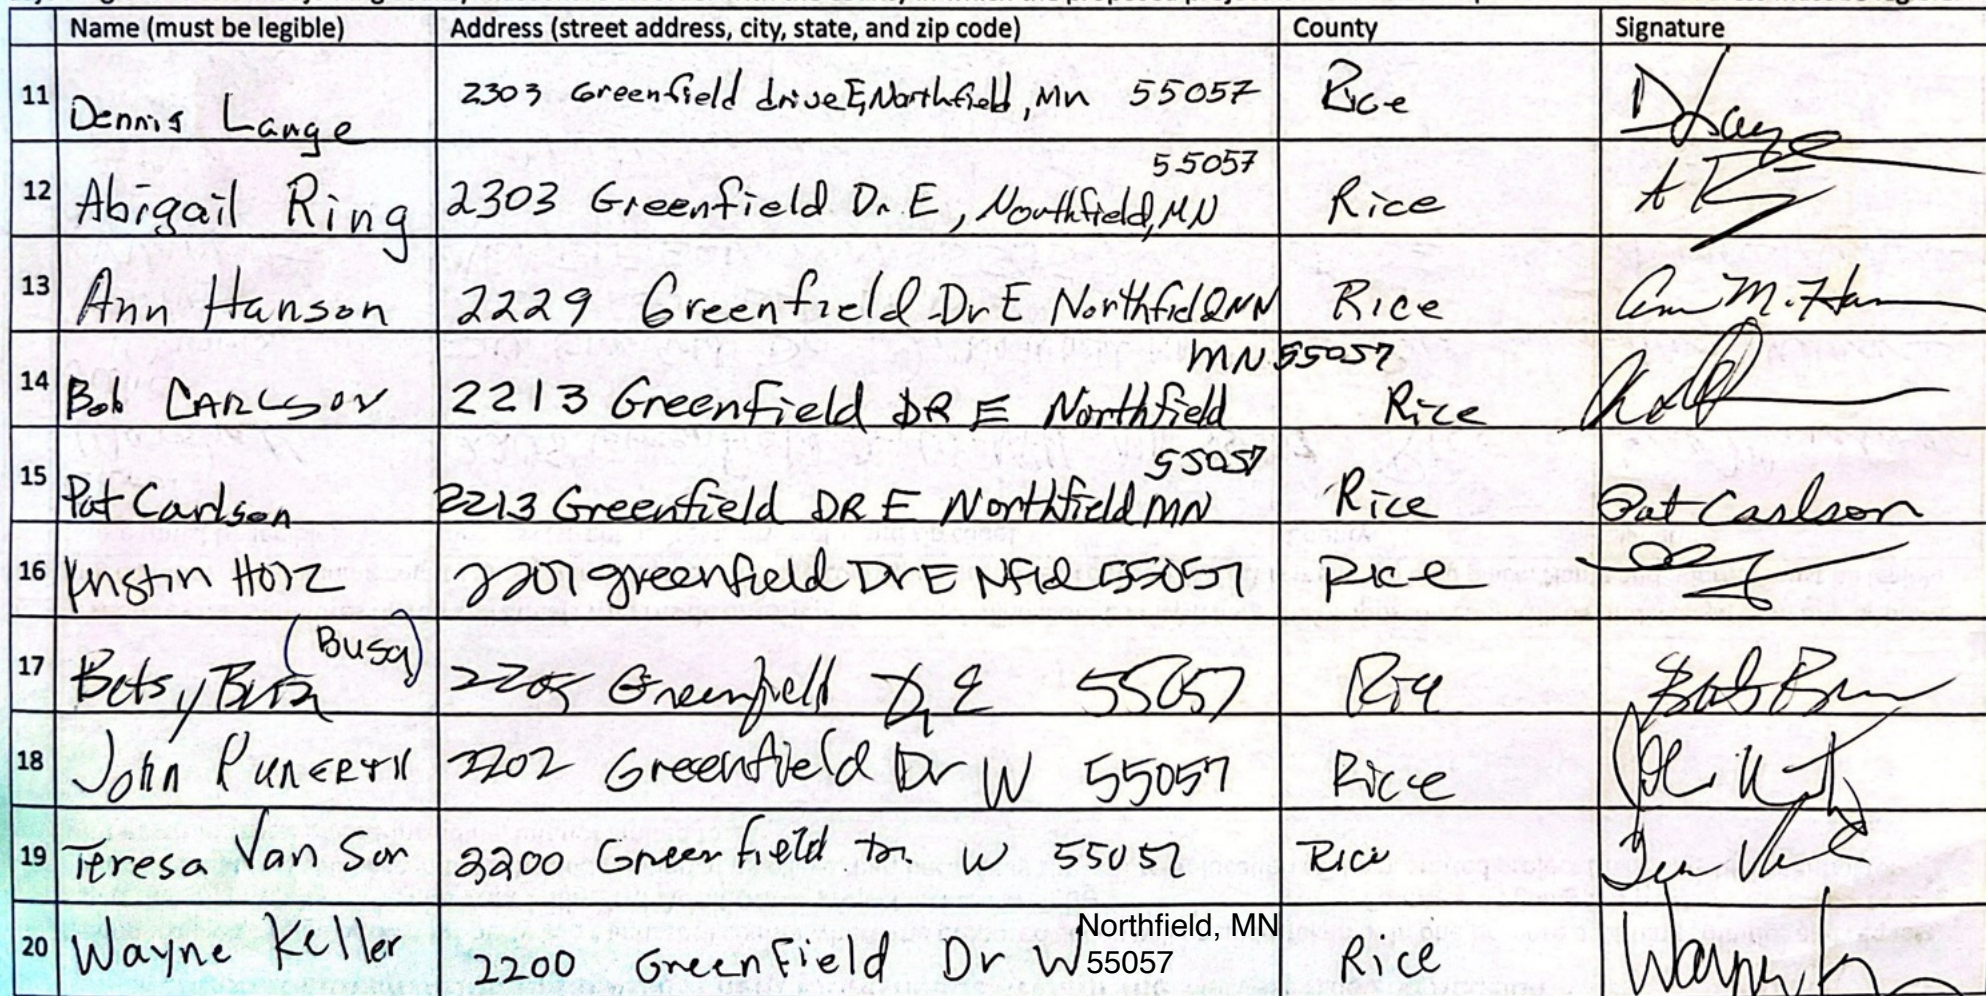 Name (must be legible) Address (street address, city, state, and zip code) County Signature
11 Dennis Lange 2303 Greenfield drive E, Northfield, Mn 55057 Rice
55057
12 Abigail Ring 2303 Greenfield Dr E, Northfield, MN Rice
13 Ann Hanson 2229 Greenfield Dr E Northfield MN Rice Ann M. Han
MN 55057
14 Bob CARLSON 2213 Greenfield DR E Northfield Rice
55057
15 Pat Carlson 2213 Greenfield DR E Northfield MN Rice Pat Carlson
16 Holz Greenfield Dr E Nfld 55057 Rice
(Busa)
17 Betsy Busa 2205 Greenfield Dr E 55057 Rice
18 John 2202 Greenfield Dr W 55057 Rice
19 Teresa Van Sor 2200 Greenfield Dr. W 55057 Rice
Northfield, MN
20 Wayne Keller 2200 Greenfield Dr W 55057 Rice Wayne